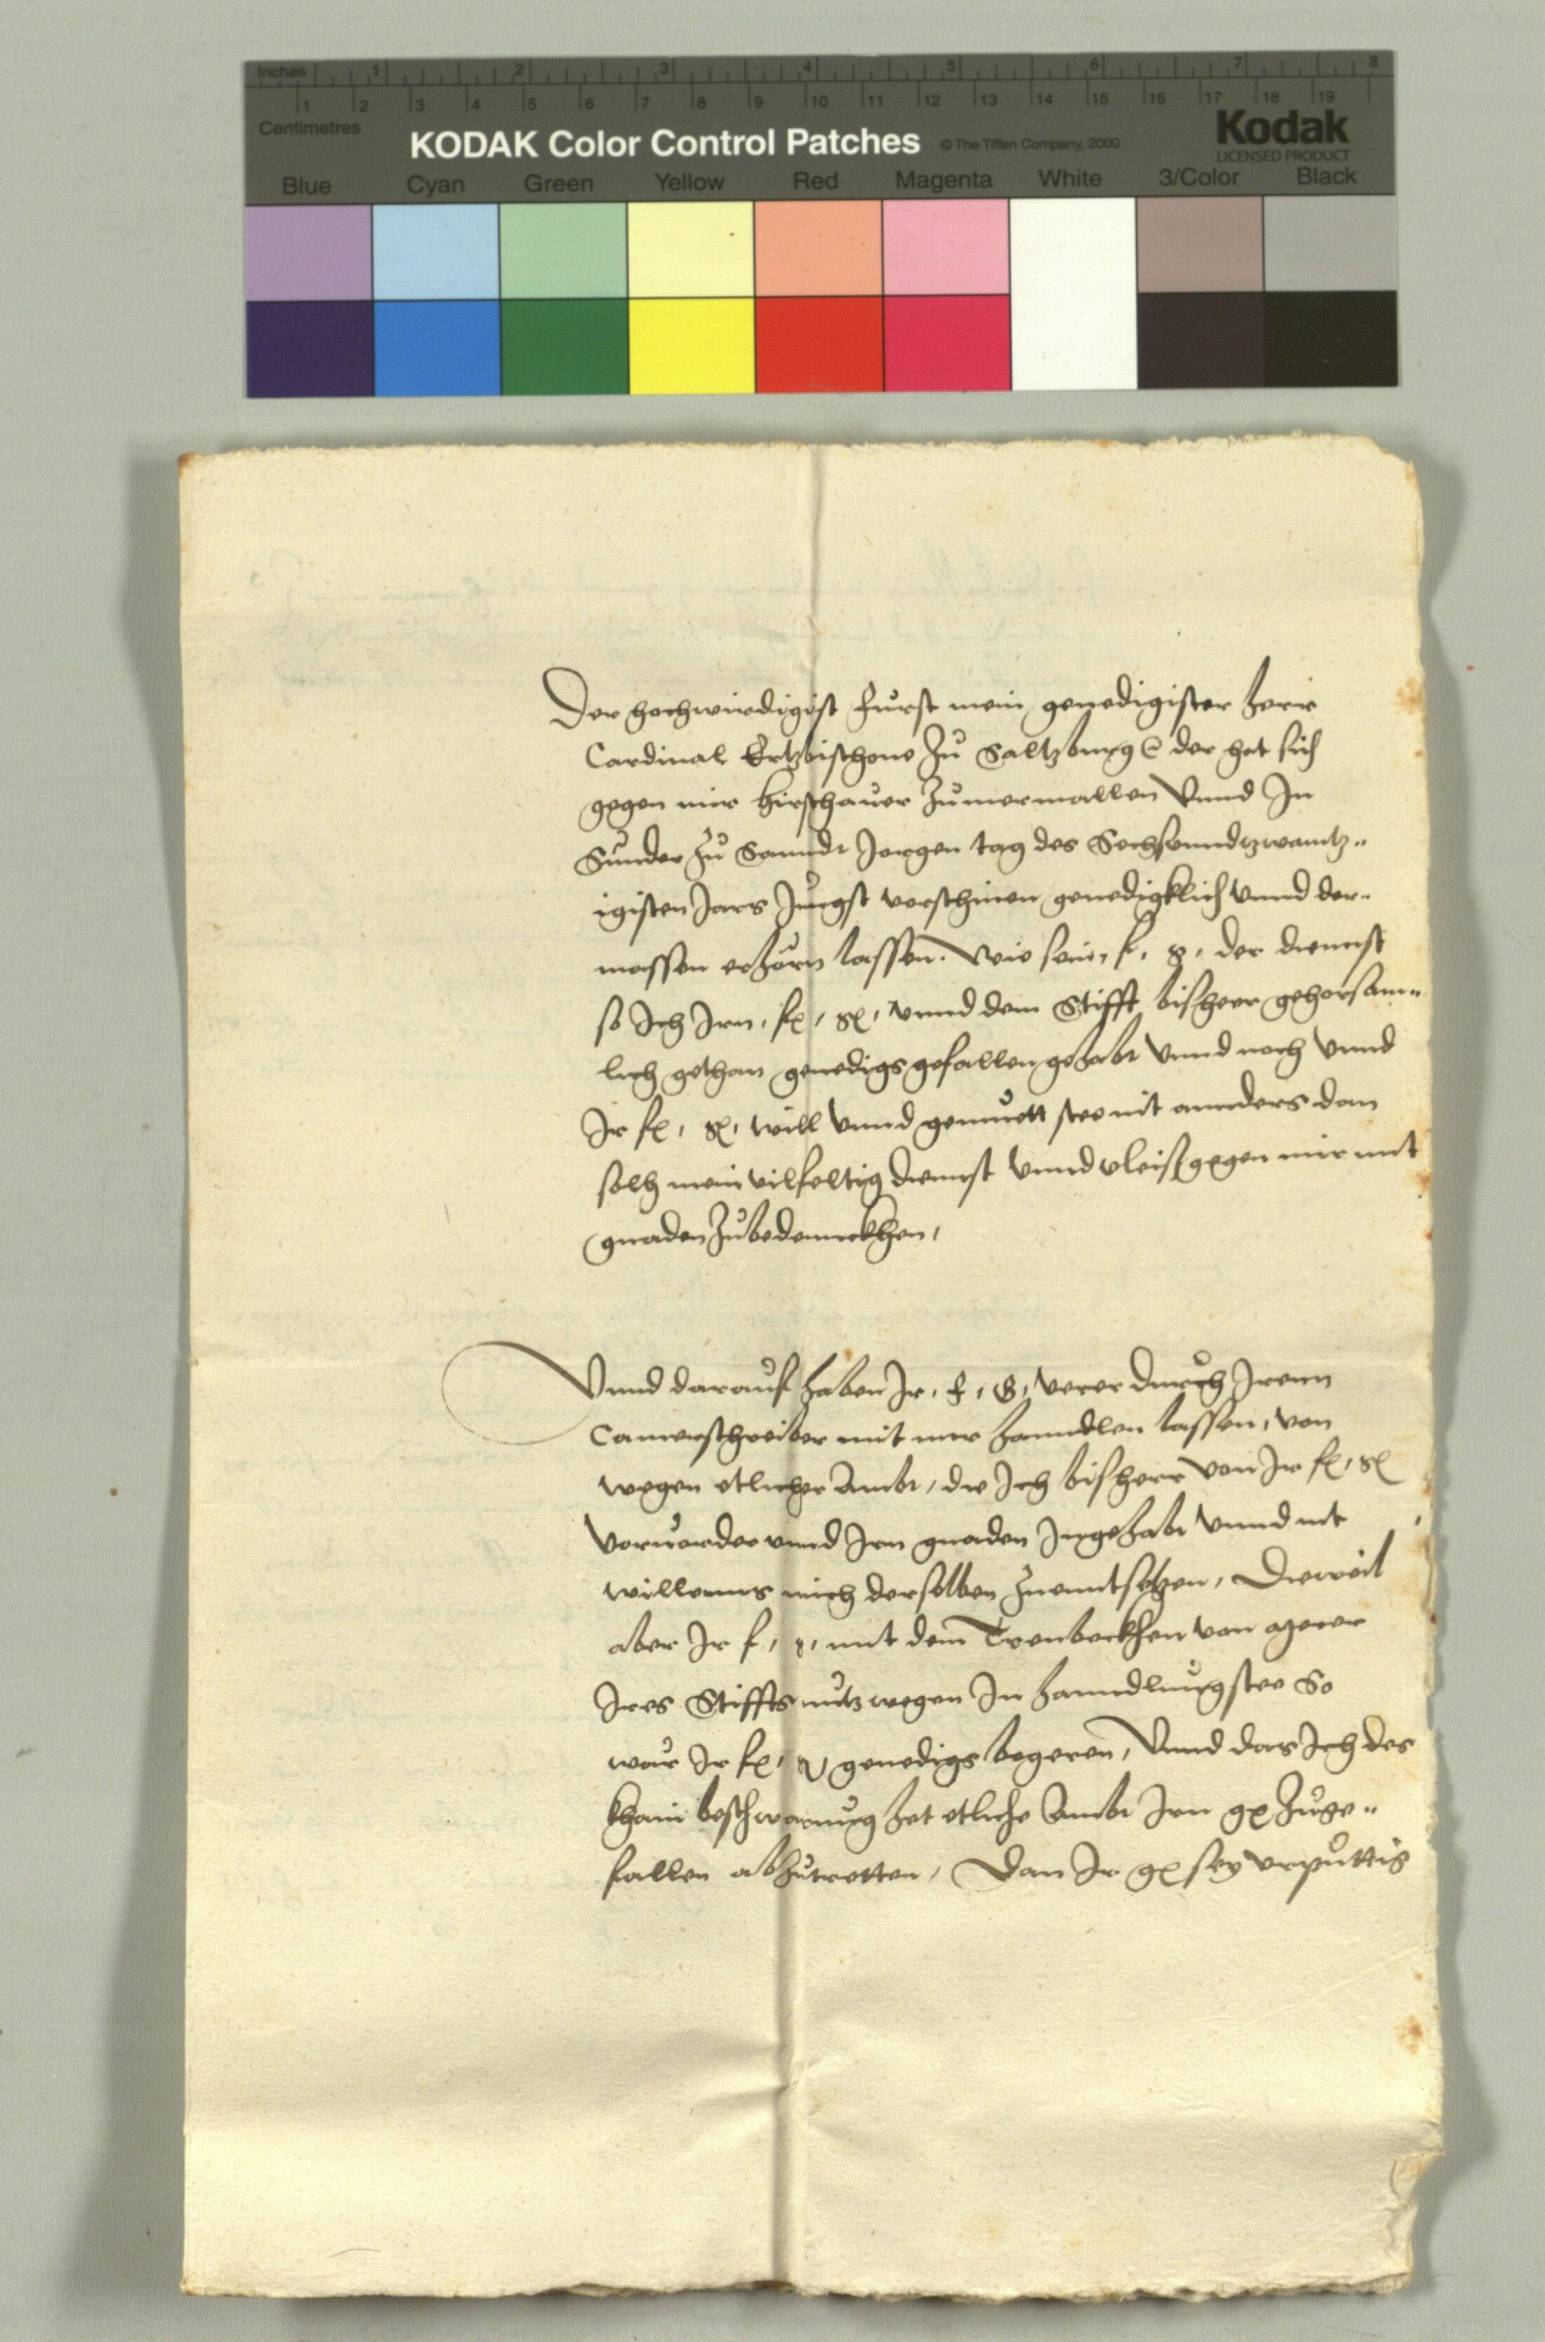 Inches 1 2 3 4 5 6 7 8
1 2 3 4 5 6 7 8 9 10 11 12 13 14 15 16 17 18 19
Centimetres
KODAK Color Control Patches © The Tiffen Company, 2000 Kodak
LICENSED PRODUCT
Blue Cyan Green Yellow Red Magenta White 3/Color Black
Der hochwirdigist Furst mein genedigister herr
Cardinal Ertzbischove Zu Saltzburg der het sich
gegen mir hirschauer Zumermallen Vnnd In
Sunder Zu Sanndt Jorgen tag des Sechsunndtzwaintz-
igisten Jars Jungst verschinen genedigklich vnnd der-
massen erhörn lassen. Wie sein, f, g, der diennst
so Ich Irn, f, g, vnnd dem Stifft bisheer gehorsam-
lich gethan genedigs gefallen gehabt Vnnd noch Vnnd
Ir f, g, will Vnnd gemuett stee nit annders dan
solh mein vilfeltig diennst Vnnd vleis gegen mir mit
gnaden Zubedennckhen,
Vnnd darauf haben Ir, F, G, verer durch Irenn
Camerschreiber mit mir hanndlen lassen, von
wegen etlicher Ambt, die Ich bisheer von Ir f, g
Voruorder vnnd Irn gnaden Inngehabt Vnnd nit
willenns mich derselben Zuenntsetzen, Dieweil
aber Ir f, g, mit dem Trenbeckhen von
Ires Stiffts nutz wegen In hanndlung stee So
wär Ir f, g genedigs begeren, Vnnd das Ich des
khain beschwärung het etliche Ambt Irn g Zuge-
fallen abzutretten, Dan Ir g sey vrpüttig